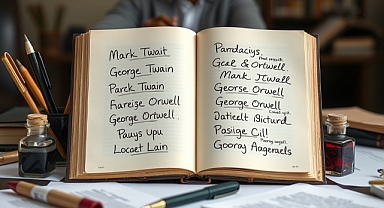 Mark Twait
George Twain
Parck Twain
Fareise Orwell
George Ortwell.
Pauys Upu
Locaet Lain
Pandaciys.
Geal & Ortwell.
Mark Twall
Georse Orwell
George Orwell
Datielt Bicturd
Pasige Cil!
Gooray Aageraels